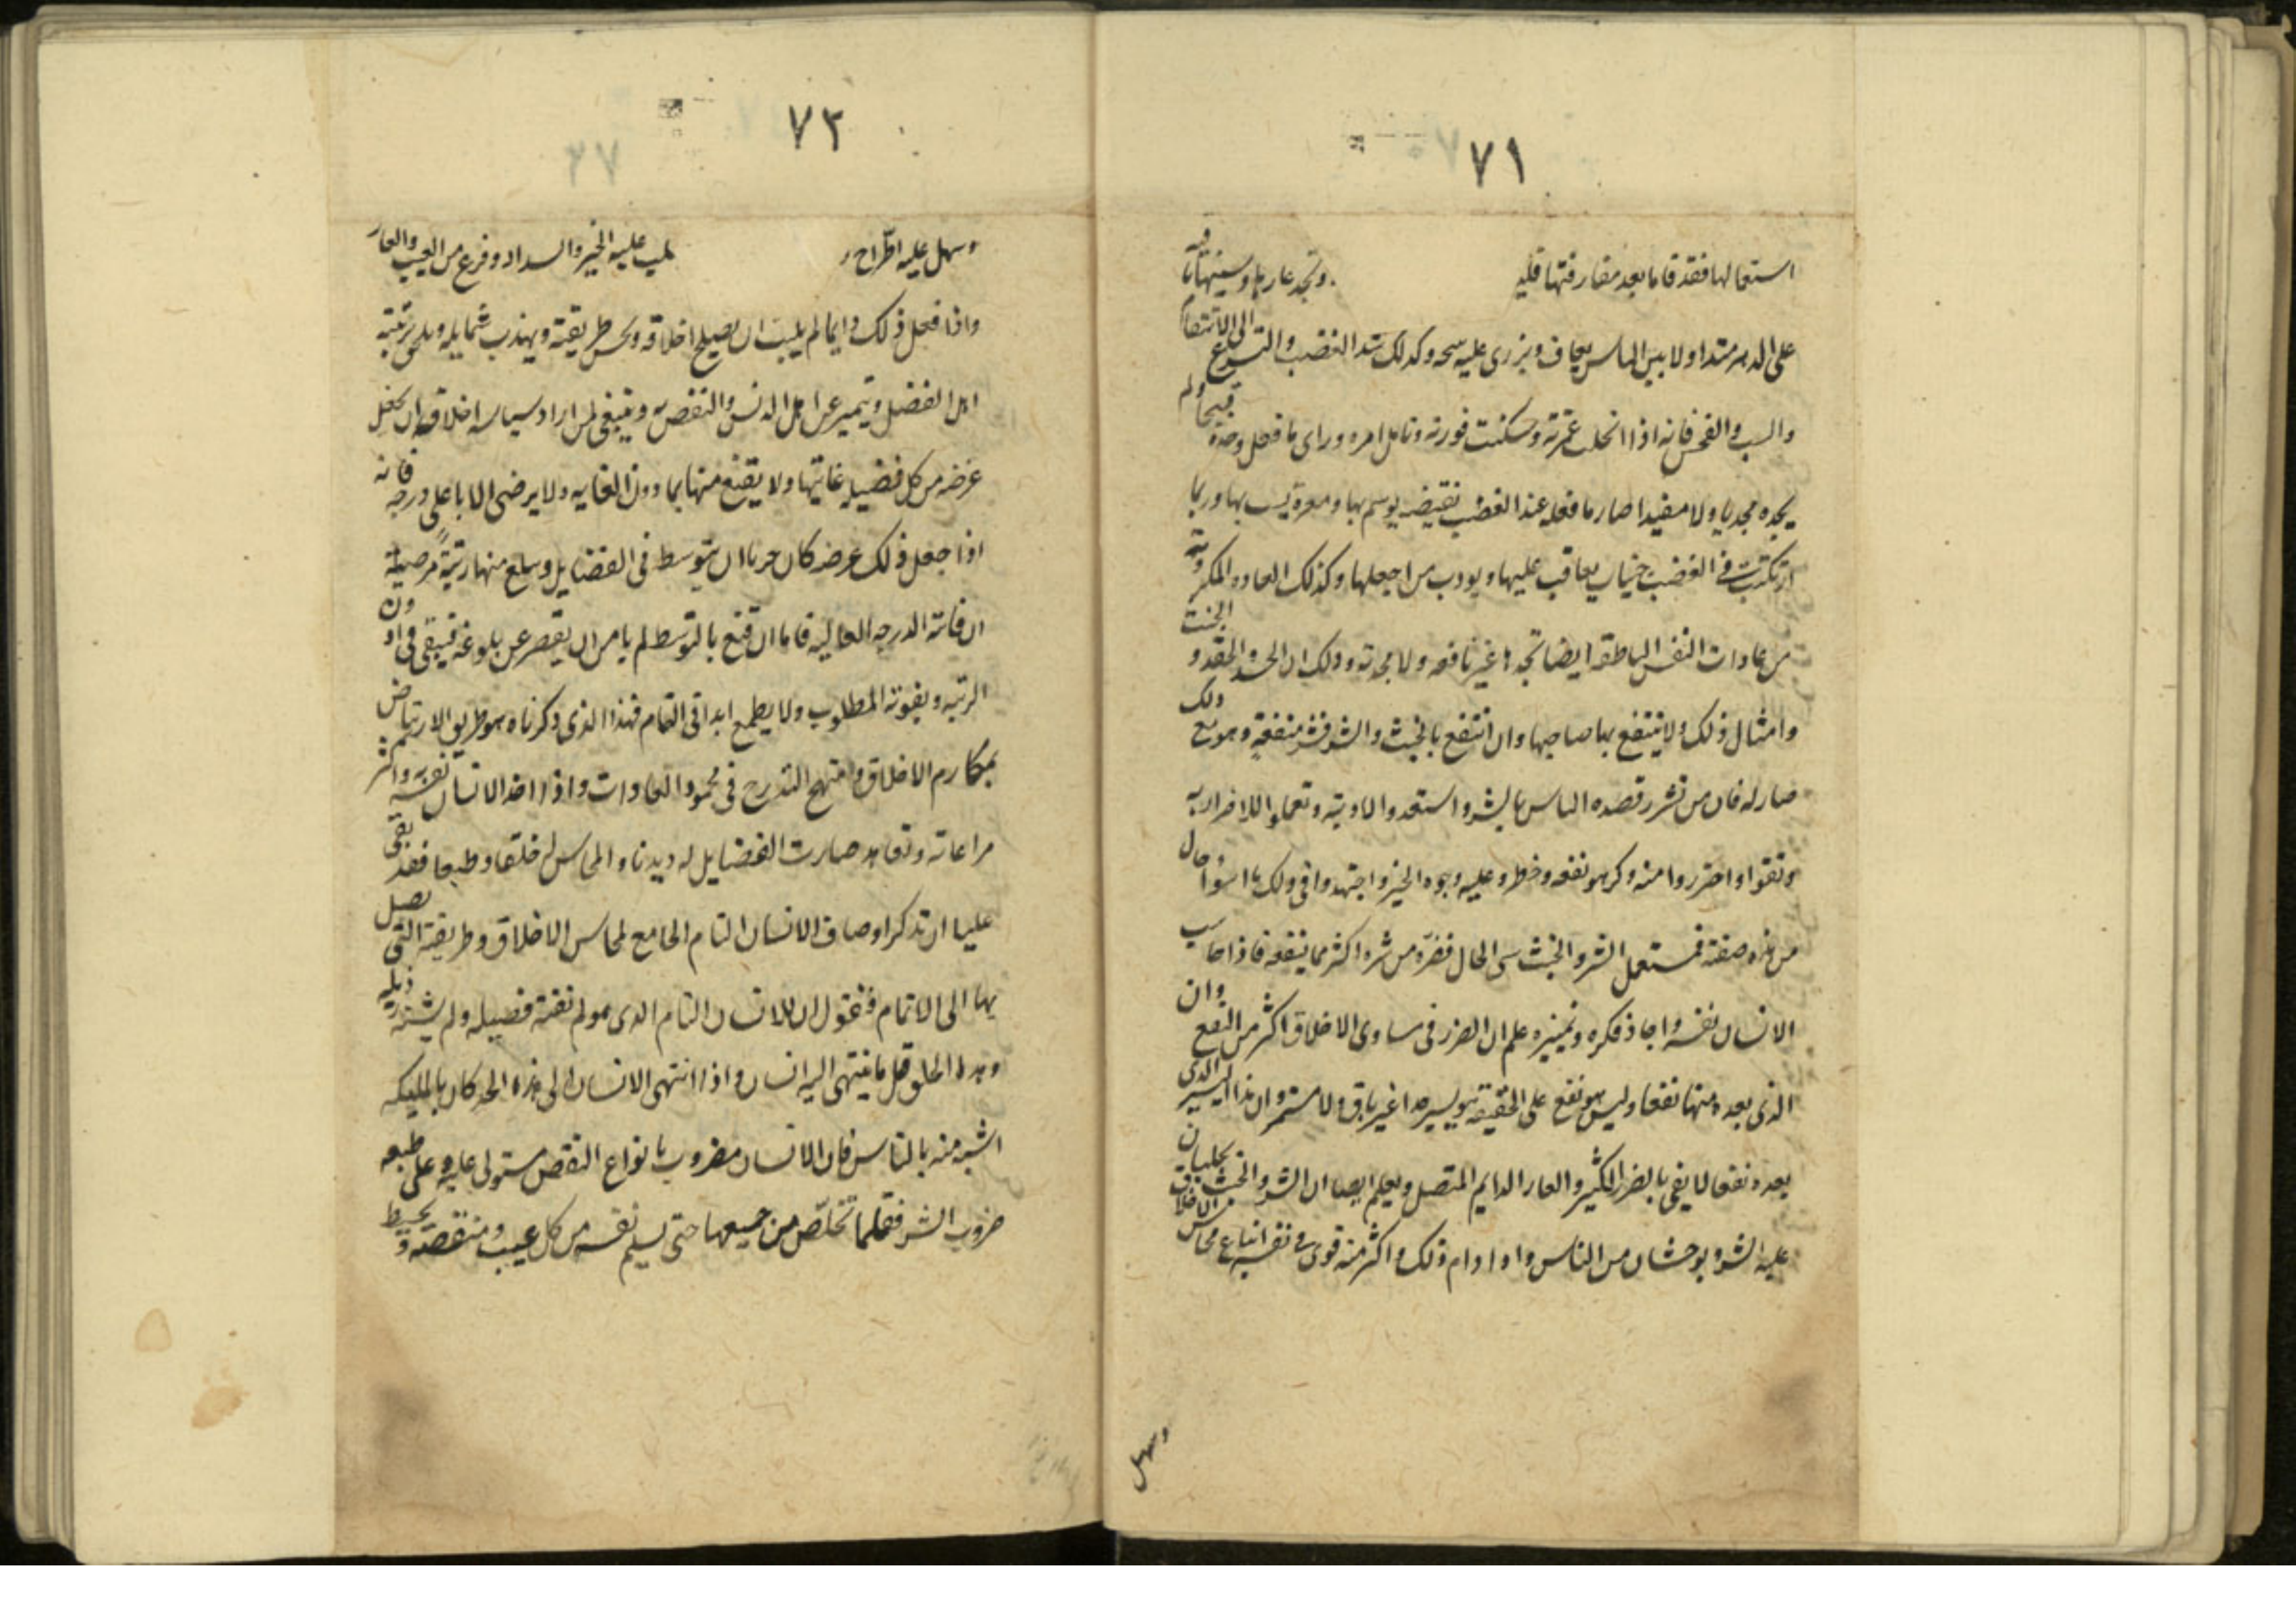 ٧١
استعمالها فقد فاما بعد مفارقتها قليه وتجد عارها وسينهاتا فيه
على الدهر متداولا بين الناس يعاف ويزرى عليه سحه وكذلك شد الغضب والتسرع الى الانتقام
والسب والفحش فانه اذا انحلت غمرته وسكنت فورته وتامل امره وراى ما فعل وجده قبيحا ولم
يجده مجديا ولا مفيدا صار ما فعله عند الغضب نقيضه يوسم بها ومعرة يسب بها وربما
ارتكبت فى الغضب جنايات يعاقب عليها ويودب من اجلها وكذلك العاده المكروهة
من عادات النفس الناطقه ايضا تجدها غير نافعه ولا مجديه وذلك ان الحسد والحقد و الخبث
وامثال ذلك لا ينتفع بها صاحبها وان انتفع بالخبث والشر فشر منفعة وهو مع ذلك
ضار له فان من تشرر قصده الناس بالشر واستعدوا لاذيته وتعملوا للاضرار به
وتقوا واحترزوا منه وكرهو نفعه وخطروا عليه وجوه الخير واجتهدوا فى ذلك ما اسوا حال
من هذه صفته فمستعمل الشر والخبث سى الحال فضره من شره اكثر مما ينفعه فاذا حاسب
الانسان نفسه واجاد فكره وتمييزه علم ان الضرر فى مساوى الاخلاق اكثر من النفع وان
الذى يعده منها نفعا وليس هو نفع على الحقيقه هو يسير جدا غير باق ولا مستمر وان هذا اليسير الذى
يعده نفعا لا يفى بالضرر الكثير والعار الدايم المتصل ويعلم ايضا ان الشر والخبث يجلبان
عليه الشر ويوحشان من الناس واذا دام ذلك واكثر منه قوى فى نفسه اتباع محاسن الاخلاق
وسهل
٧٢
وسهل عليه اطراح و عليه الخير والسداد وفرغ من العيب والعار
واذا فعل ذلك دايما لم يلبث ان يصلح اخلاقه وتحسن طريقته ويهذب شمايله ويلحق برتبة
اهل الفضل ويتميز عن اهل الدنس والنقص وينبغى لمن اراد سياسه اخلاقه ان يجعل
غرضه من كل فضيله غايتها ولا يقنع منها بما دون الغايه ولا يرضى الا باعلى درجه فانه
اذا جعل ذلك غرضه كان حريا ان يتوسط فى الفضايل ويبلغ منها رتبة مرضية
ان فاتته الدرجه العاليه فاما ان قنع بالتوسط لم يامن ان يقصر عن بلوغه فيبقى فى ادون
الرتبه ويفوته المطلوب ولا يطمع ابدا فى التمام فهذا الذى ذكرناه هو طريق الارتياض
بمكارم الاخلاق ومنهج التدرج فى محمود العادات واذا اخذ الانسان نفسه به واكثر
مراعاته وتعاهده صارت الفضايل له ديدنا والمحاسن له خلقا وطبعا فقد بقى
علينا ان نذكر اوصاف الانسان التام الجامع لمحاسن الاخلاق وطريقته التى يصل
بها الى الاتمام فنقول ان الانسان التام الذى هو لم تفته فضيله ولم تشنه رذيله
وهذا الحد قل ما ينتهى اليه انسان واذا انتهى الانسان الى هذا الحد كان بالمليكه
اشبه منه بالناس فان الانسان مضروب بانواع النقص مستولى عليه وعلى طبعه
ضروب الشر فقلما تخلص من جميعها حتى يسلم نفسه من كل عيب ومنقصة و يحيط